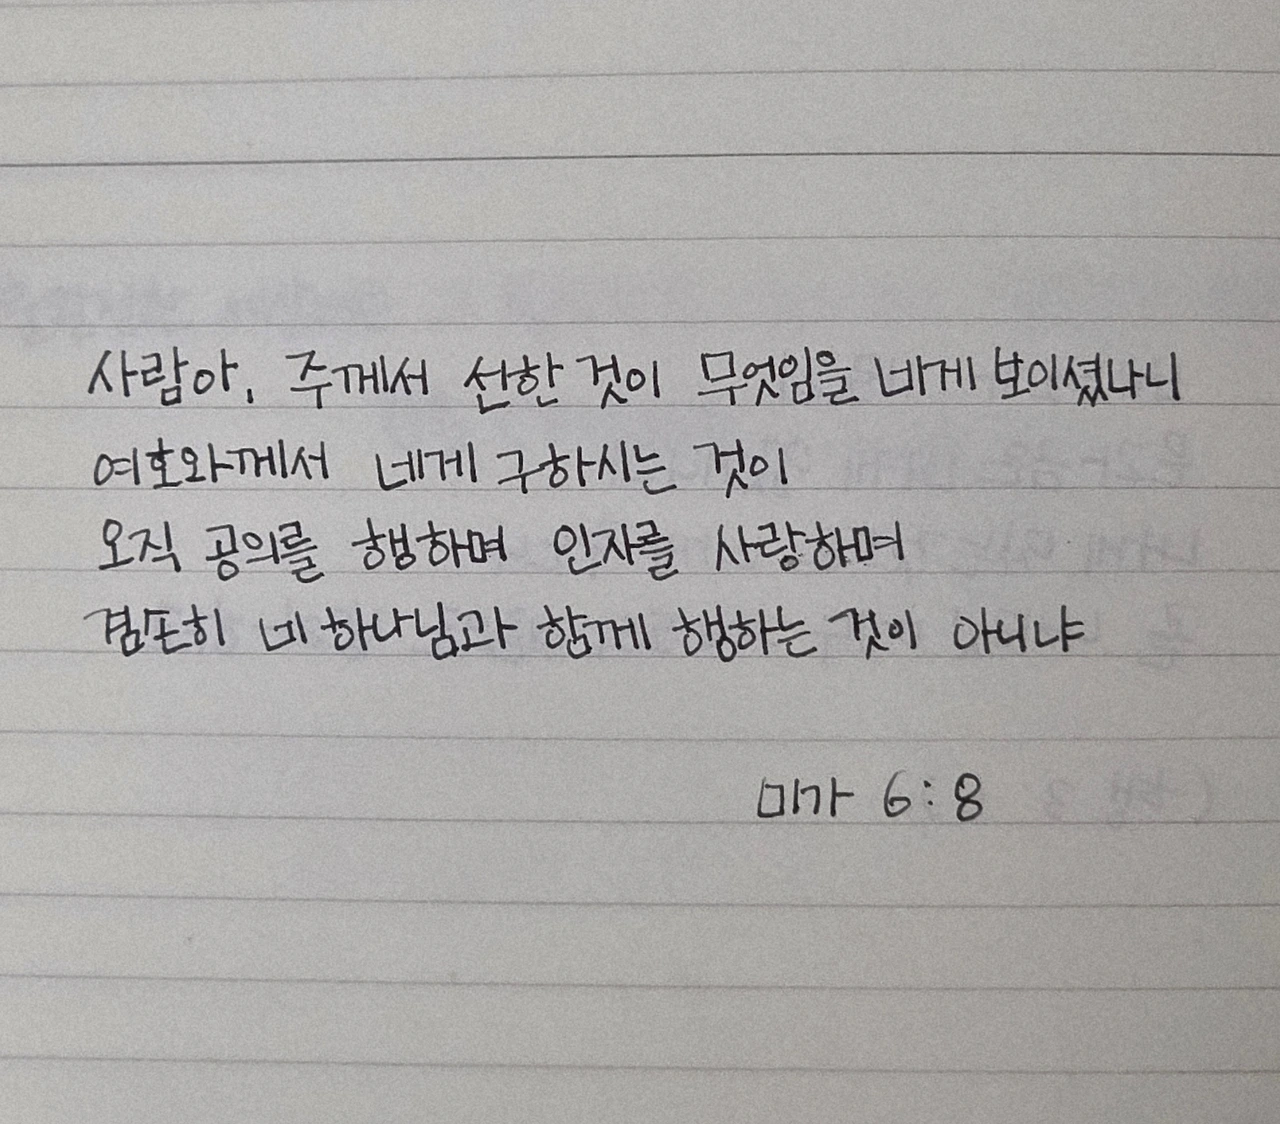 사람아, 주께서 선한 것이 무엇임을 네게 보이셨나니
여호와께서 네게 구하시는 것이
오직 공의를 행하며 인자를 사랑하며
겸손히 네 하나님과 함께 행하는 것이 아니냐
미가 6:8